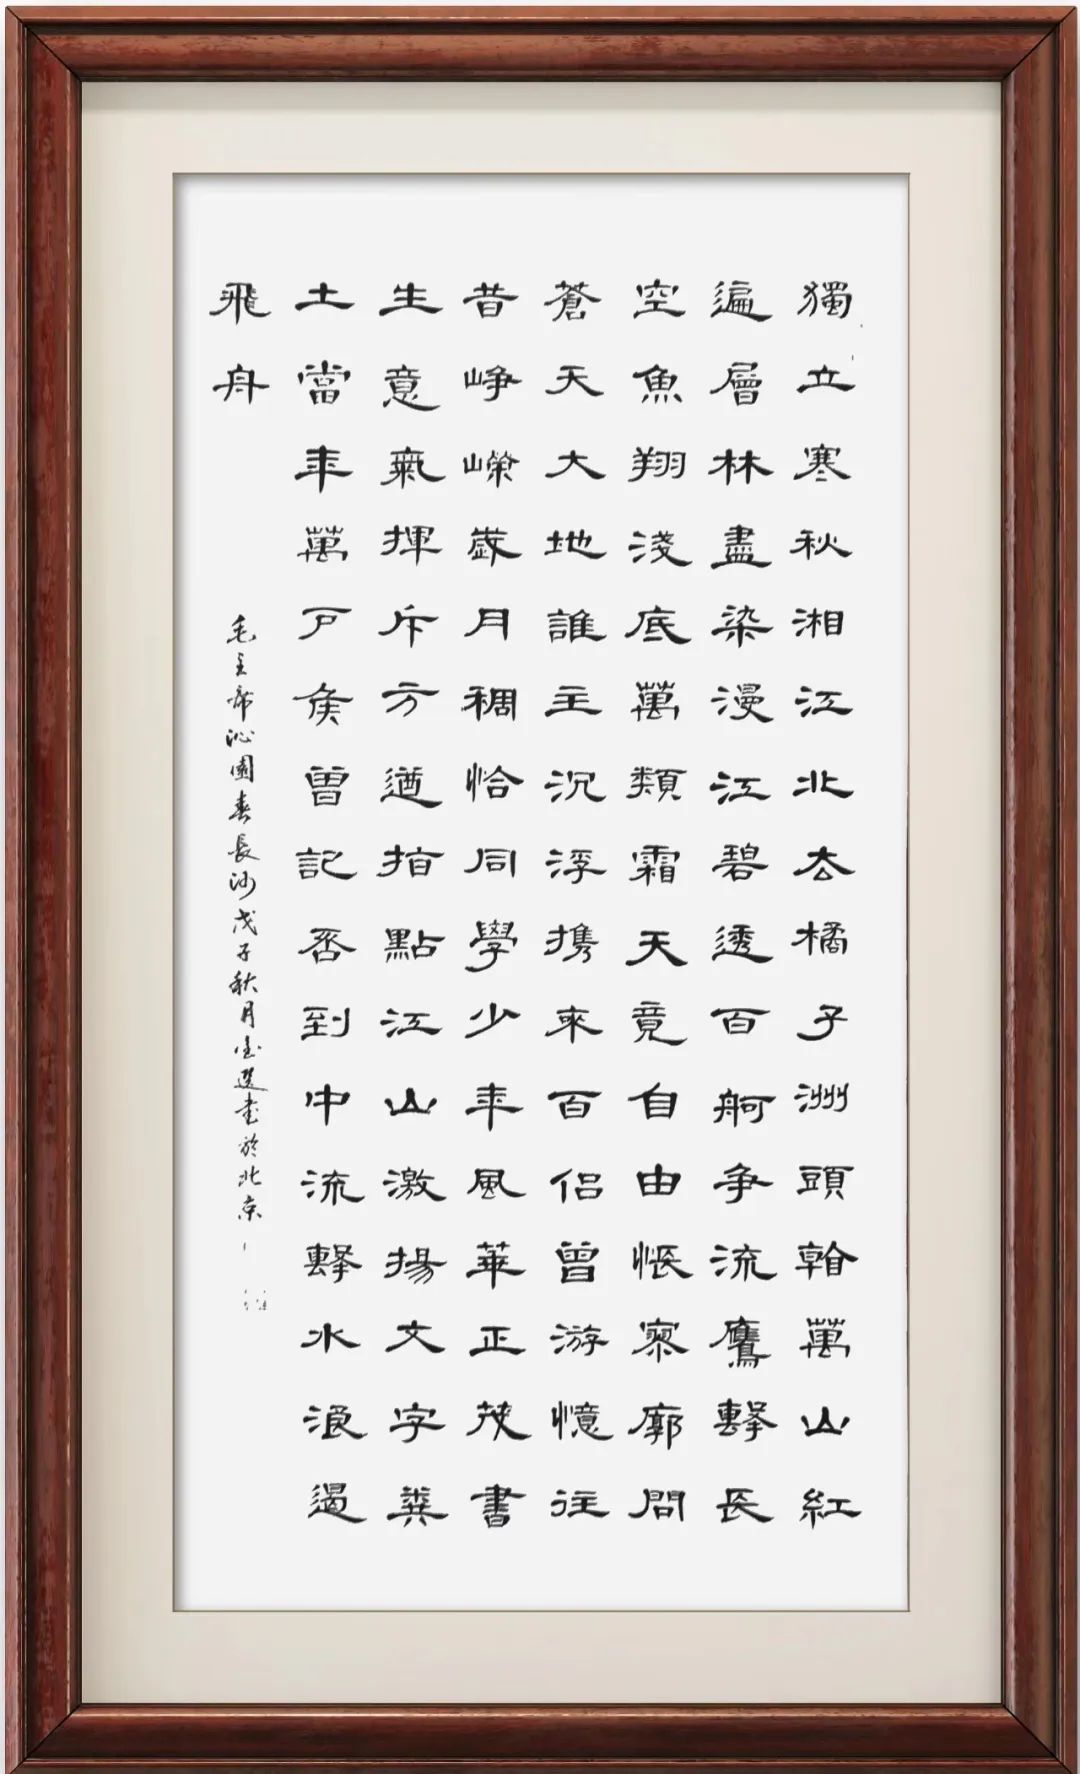 獨立寒秋湘江北去橘子洲頭看萬山紅
遍層林盡染漫江碧透百舸争流鷹擊長
空魚翔淺底萬類霜天竟自由悵寥廓問
蒼天大地誰主沉浮携來百侣曾游憶往
昔峥嶸歲月稠恰同學少年風華正茂書
生意氣揮斥方遒指點江山激揚文字糞
土當年萬户侯曾記否到中流擊水浪遏
飛舟
毛主席沁園春長沙戊子秋月選書於北京